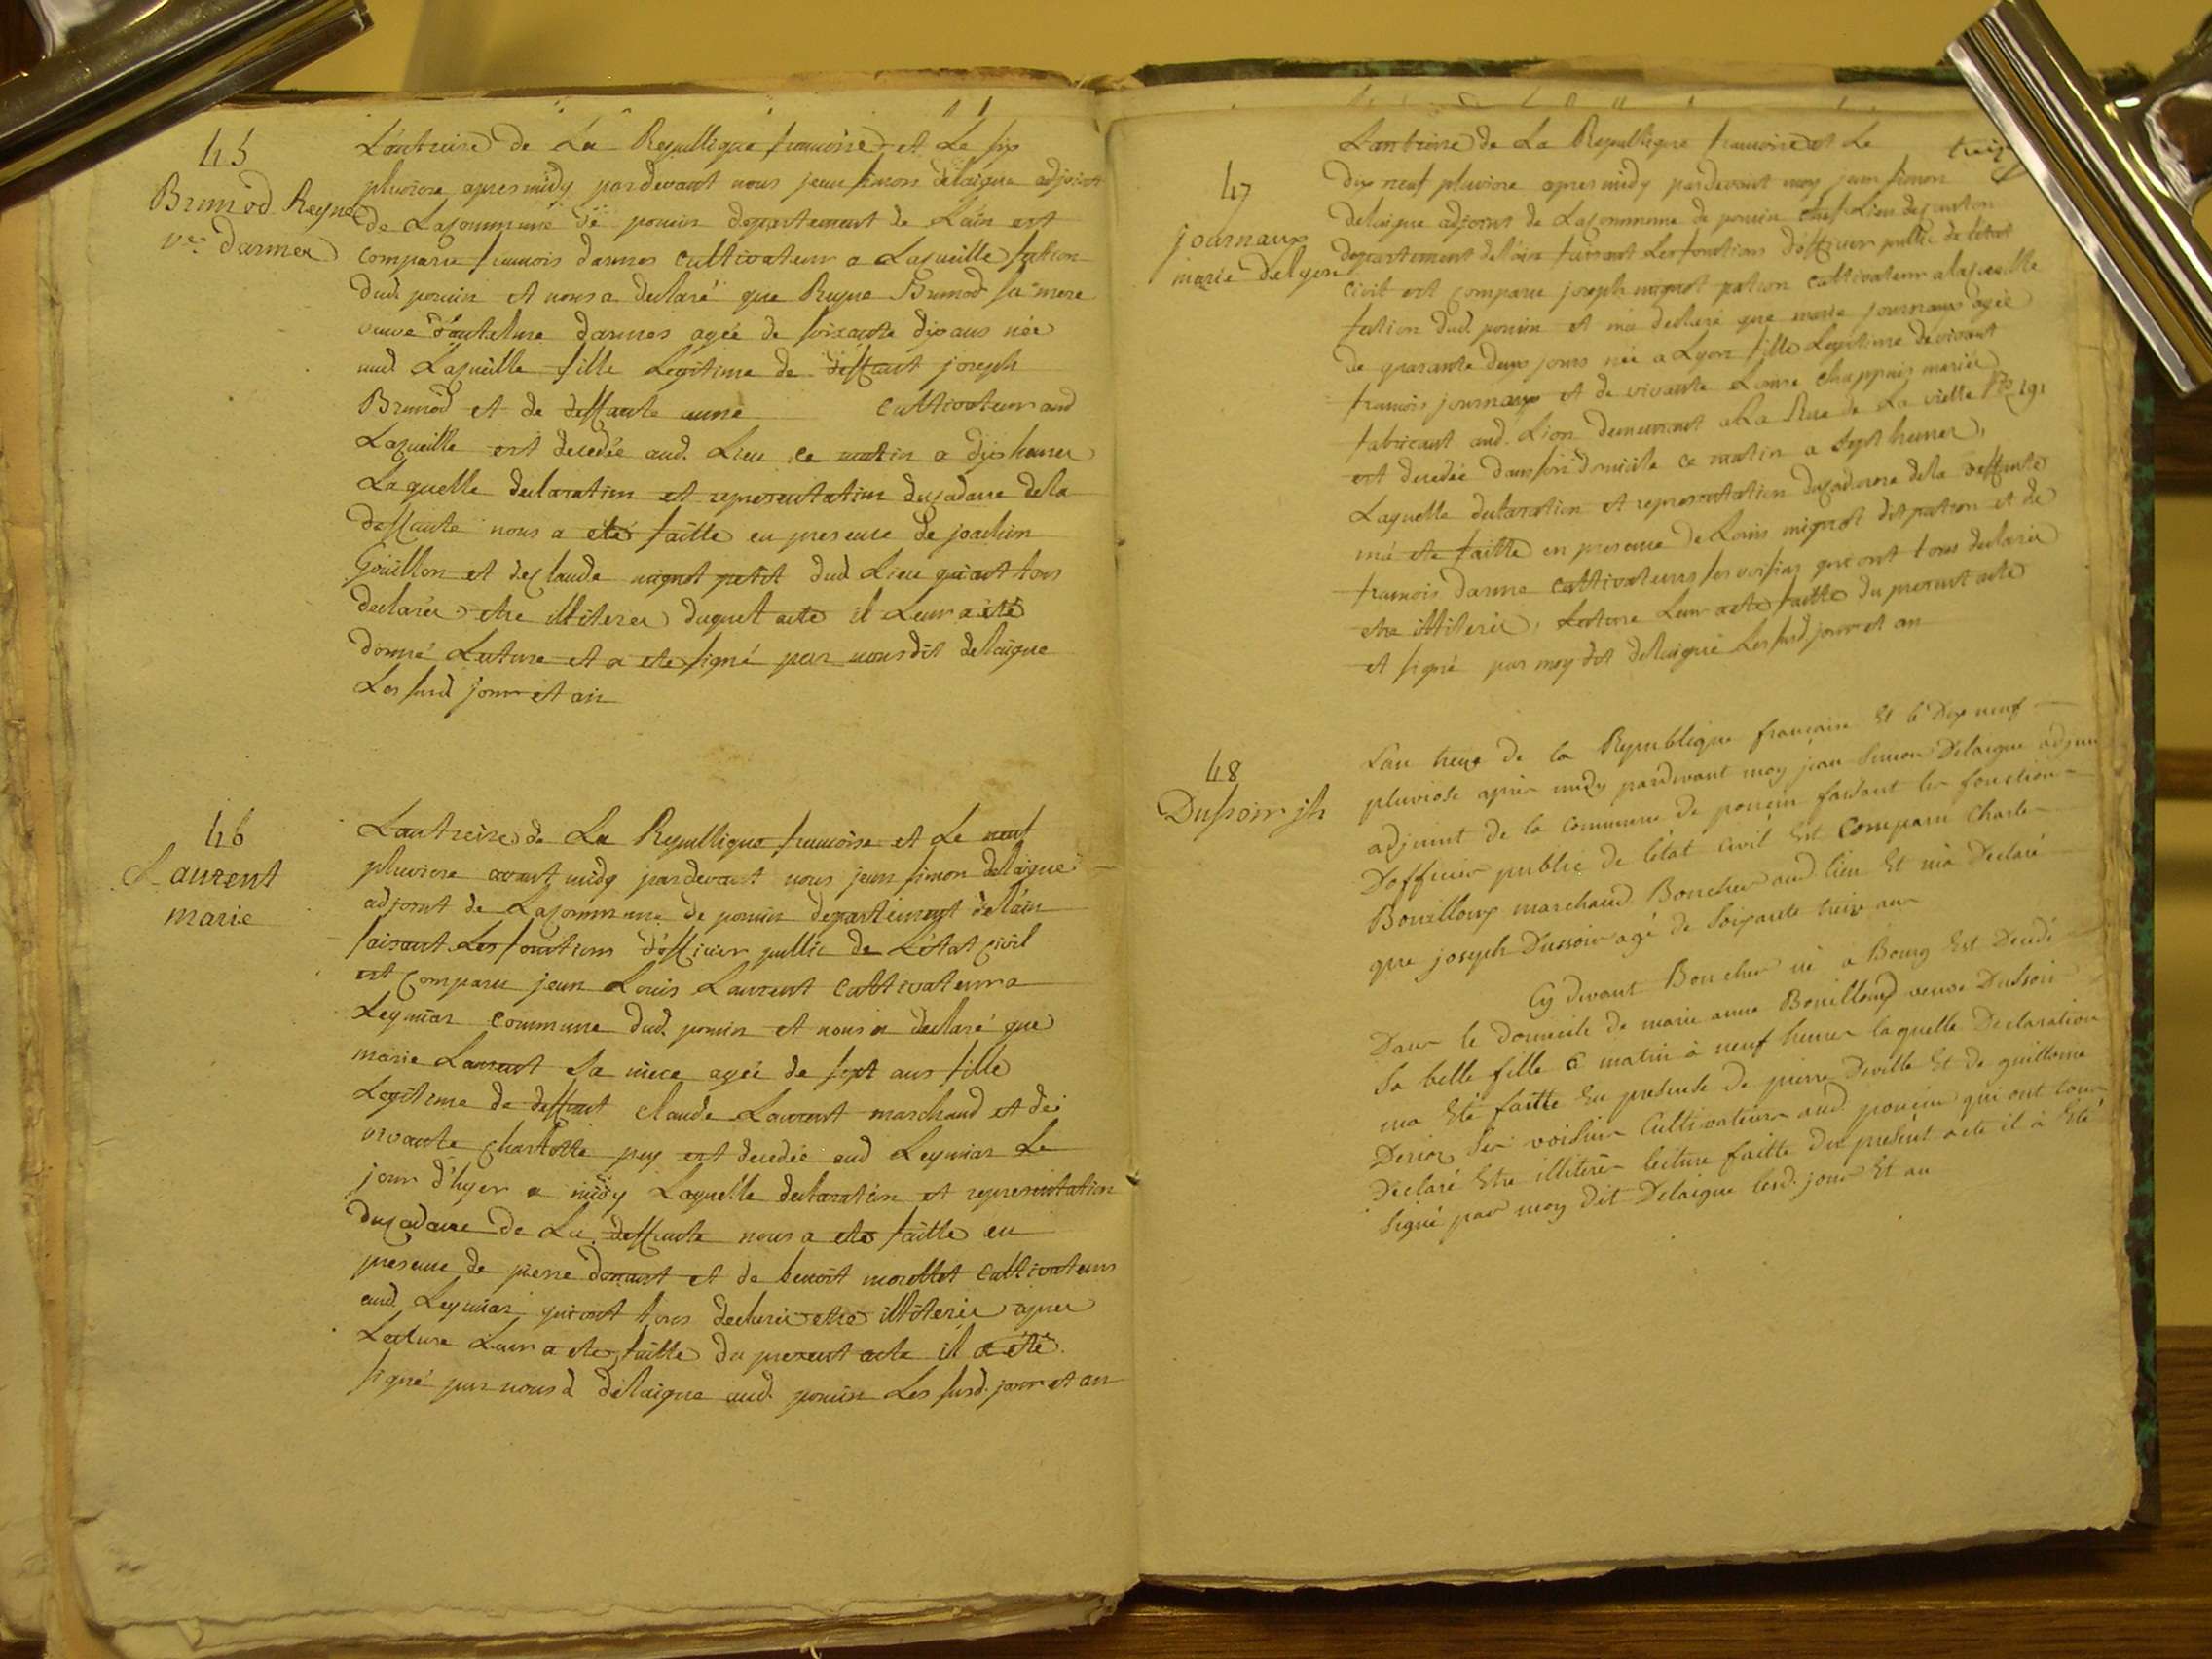 45
Brunod Reyne
ve. darmes
Lantreize de La Republique francoise et Le six
pluviose apres midy pardevant nous jean simon delaigue adjoint
de Lacommune de poncin departement de Lain est
comparu francois darmes cultivateur a Lacueille section
dud. poncin et nous a declaré que Reyne Brunod sa mere
veuve d'antelme darmes agée de soixante dix ans née
aud. Lacueille fille Legitime de deffunt joseph
Brunod et de deffunte anne cultivateur aud
Lacueille est decedée aud. Lieu ce matin a dix heures
Laquelle declaration et representation ducadavre dela
deffunte nous a eté faitte en presence de joachim
Goüillon et declaude mignot petit dud Lieu qui ont tous
declarés etre illiteres duquel acte il Leur a été
donné Lecture et a ete signé par nous dit delaigue
Les susd jour et an
46
Laurent
marie
Lantreize de La Republique francoise et Le neuf
pluviose avant midy pardevant nous jean simon delaigue
adjoint de Lacommune de poncin departement delain
faisant Les fonctions d'officier public de L'état civil
est comparu jean Louis Laurent cultivateur a
Leymiar commune dud. poncin et nous a declaré que
marie Laurent sa niece agée de sept ans fille
Legitime de deffunt claude Laurent marchand et de
vivante charlotte pey est decedée aud Leymiar Le
jour d'hyer a midy Laquelle declaration et representation
ducadavre de La deffunte nous a ete faitte en
presence de pierre donant et de benoit morellet cultivateurs
aud. Leymiar qui ont tous declarés etre illiterés apres
Lecture Leur a ete faitte du present acte il a été
signé par nous d delaigue aud. poncin Les susd. jour et an
treize
47
journaux
marie delyon
Lantreize de La Republique francoise et Le
dix neuf pluviose apres midy pardevant moy jean simon
delaigue adjoint de Lacommune de poncin chef Lieu decanton
departement delain faisant Les fonctions d'officier public de létat
civil est comparu joseph mignot patron cultivateur alacueille
section dud. poncin et ma declaré que marie journaux agée
de quarante deux jours née a Lyon fille Legitime devivant
francois journaux et de vivante Louise chappuis mariés
fabricant aud. Lion demeurant a La Rue de La vielle No 191
est decedée dans son domicile ce matin a sept heures,
Laquelle declaration et representation ducadavre dela deffunte
ma ete faitte en presence de Louis mignot dit patron et de
francois darme cultivateurs ses voisins qui ont tous declarés
etre illiterés, Lecture Leur acte faitte du present acte
et signé par moy dit delaigue Les susd. jour et an
48
Dussoir jh
Lan treize de la Republique francaise Et le Dix neuf
pluviose après midy pardevant moy jean Simon Delaigue adjoin
adjoint de la commune de poncin faisant les fonctions
D'officier public de létat civil Est Comparu Charles
Bouilloux marchand Boucher aud. lieu Et m'a Declaré
que joseph Dussoir agé de Soixante treize ans
Cy devant Boucher né a Bourg Est Decedé
Dans le domicile de marie anne Bouilloud veuve Dussoir
Sa belle fille ce matin à neuf heures laquelle Declaration
ma Eté faitte En presence de pierre Deville Et de guillome
Derioz Ses voisins Cultivateurs aud. poncin qui ont tous
Declaré Etre illiterés lecture faitte du présent acte il à Eté
Signé par moy dit Delaigue lesd. jour Et an